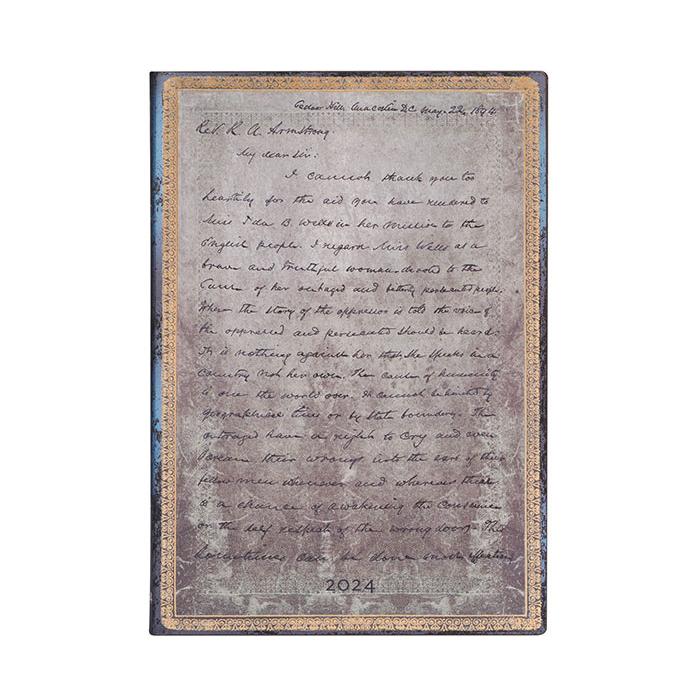 Cedar Hill, Anacostia D.C. May. 22, 1894
Rev. R. A. Armstrong.
My dear Sir:
I cannot thank you too
heartily for the aid you have rendered to
Miss Ida B. Wells in her mission to the
English people. I regard Miss Wells as a
brave and truthful woman devoted to the
Cause of her outraged and bitterly persecuted people.
When the story of the oppressor is told the voice of
the oppressed and persecuted should be heard.
It is nothing against her that she speaks in a
Country not her own. The cause of humanity
is one the world over. It cannot be bounded by
geographical lines or by State boundary. The
outraged have a right to Cry and even
Scream their wrongs into the ears of their
fellow men whenever and wherever there
is a chance of awakening the Conscience
or the self respect of the wrong doer. This
sometimes can be done more effective
2024